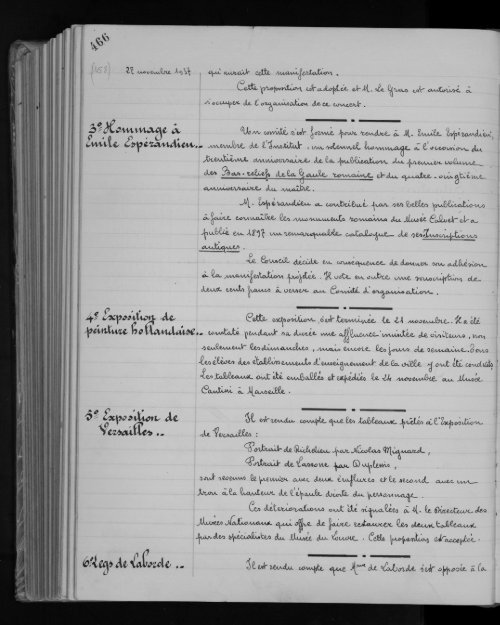 466
(458)
27 novembre 1937
qui aurait cette manifestation.
Cette proposition est adoptée et M. Le Gras est autorisé à
s'occuper de l'organisation de ce concert.
3° Hommage à
Emile Espérandieu..
Un comité s'est formé pour rendre à M. Emile Espérandieu,
membre de l'Institut, un solennel hommage à l'occasion du
trentième anniversaire de la publication du premier volume
des Bas-reliefs de la Gaule romaine et du quatre-vingtième
anniversaire du maître.
M. Espérandieu a contribué par ses belles publications
à faire connaître les monuments romains du Musée Calvet et a
publié en 1897 un remarquable catalogue de ses Inscriptions
antiques.
Le Conseil décide en conséquence de donner son adhésion
à la manifestation projetée. Il vote en outre une souscription de
deux cents francs à verser au Comité d'organisation.
4° Exposition de
peinture hollandaise..
Cette exposition s'est terminée le 21 novembre. Il a été
constaté pendant sa durée une affluence inusitée de visiteurs, non
seulement les dimanches, mais encore les jours de semaine. Tous
les élèves des établissements d'enseignement de la ville y ont été conduits.
Les tableaux ont été emballés et expédiés le 24 novembre au Musée
Cantini à Marseille.
5° Exposition de
Versailles..
Il est rendu compte que les tableaux prêtés à l'Exposition
de Versailles :
Portrait de Richelieu par Nicolas Mignard,
Portrait de Lassone par Duplessis,
sont revenus le premier avec deux éraflures et le second avec un
trou à la hauteur de l'épaule droite du personnage.
Ces détériorations ont été signalées à M. le Directeur des
Musées Nationaux qui offre de faire restaurer les deux tableaux
par des spécialistes du Musée du Louvre. Cette proposition est acceptée.
6° Legs de Laborde..
Il est rendu compte que Mme de Laborde s'est opposée à la